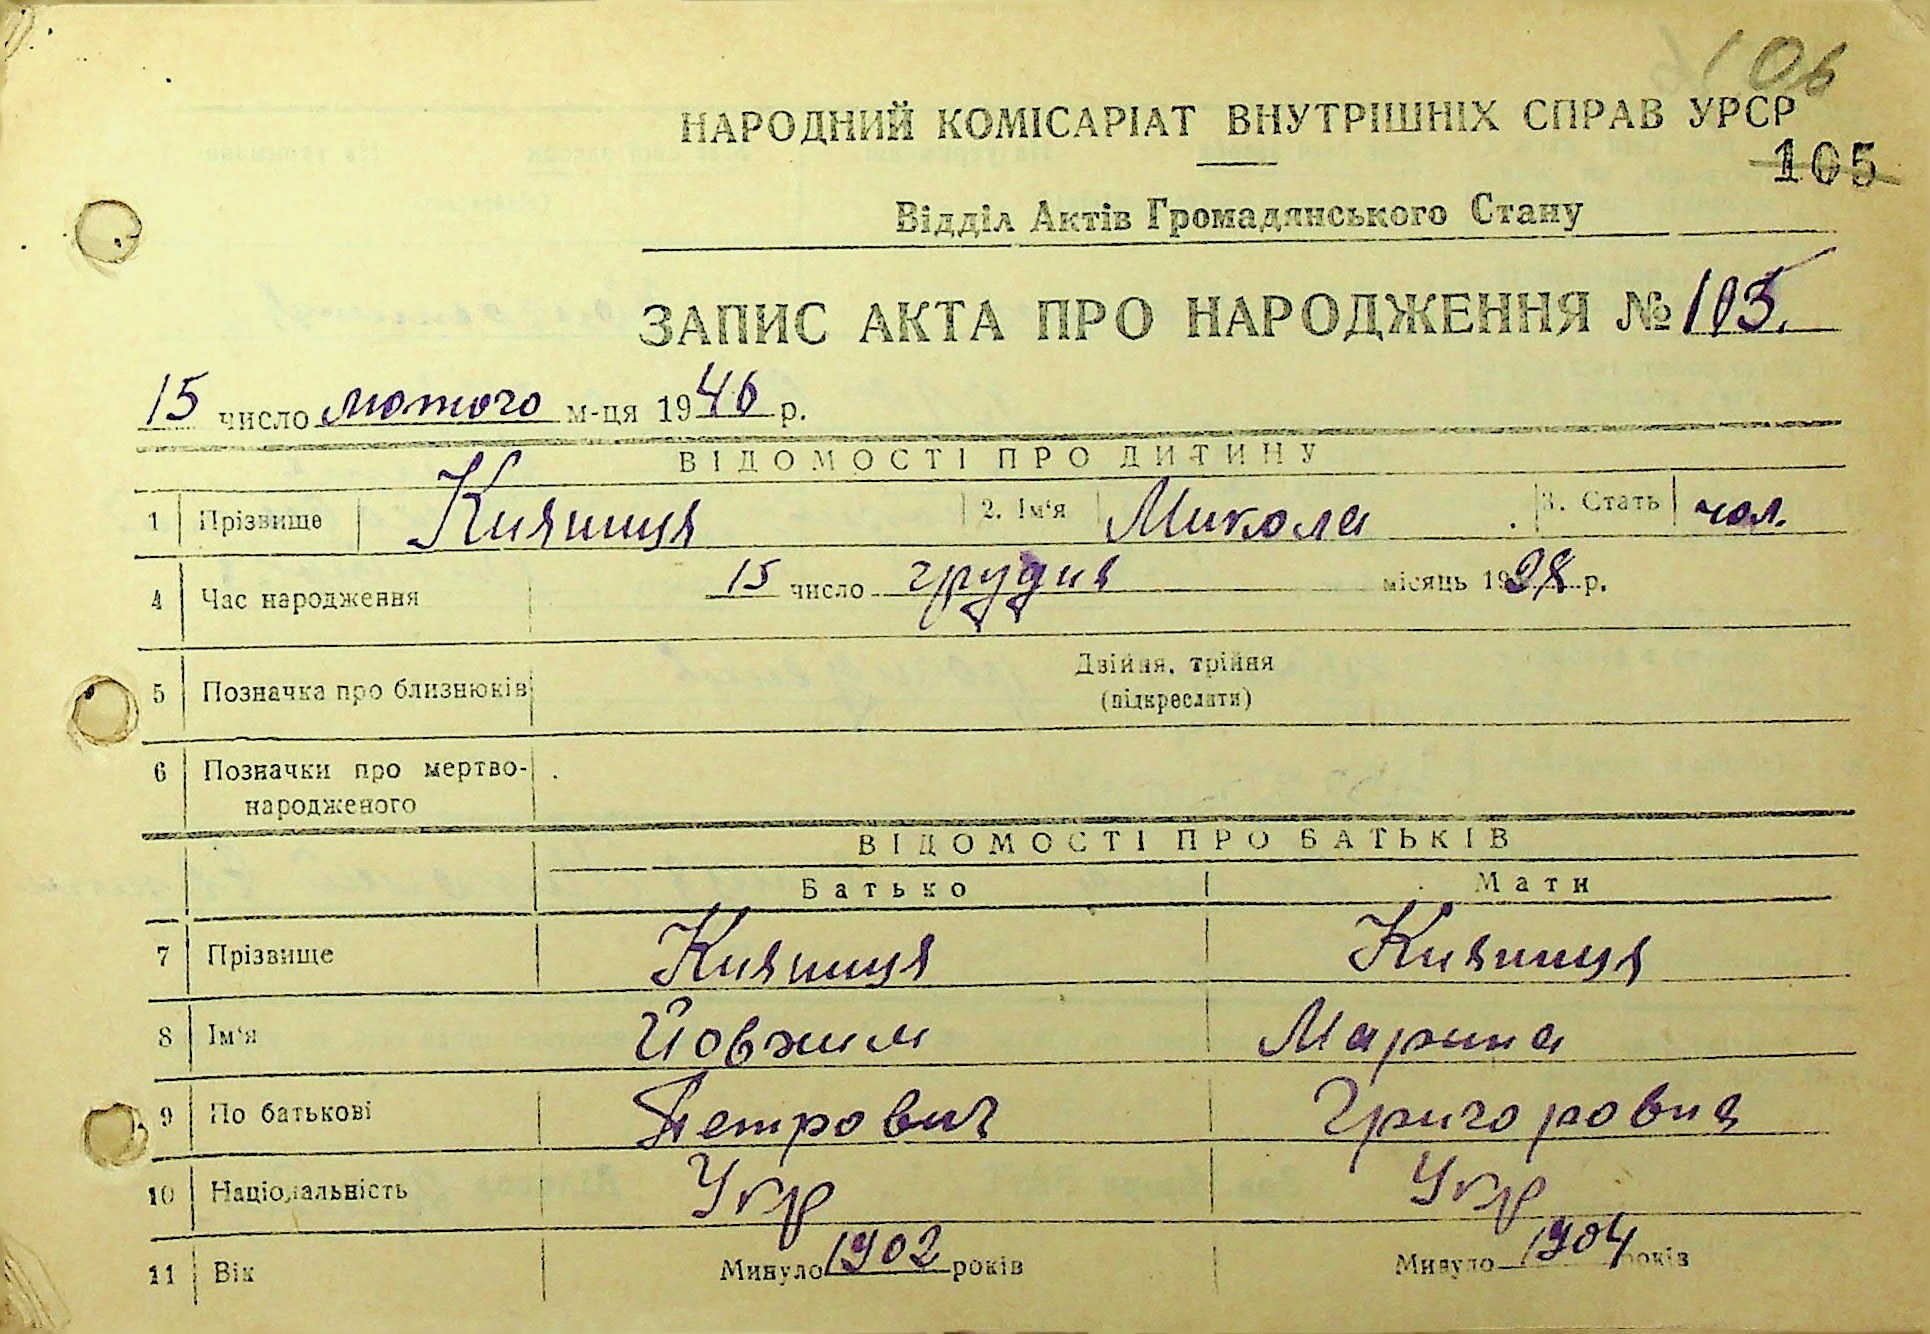 106
НАРОДНИЙ КОМІСАРІАТ ВНУТРІШНІХ СПРАВ УРСР
105
Відділ Актів Громадянського Стану
ЗАПИС АКТА ПРО НАРОДЖЕННЯ № 105.
15 число лютого м-ця 1946 р.
ВІДОМОСТІ ПРО ДИТИНУ
1 Прізвище Кияниця 2. Ім'я Микола 3. Стать чол.
4 Час народження 15 число грудня місяць 1928 р.
5 Позначка про близнюків Двійня, трійня
(підкреслити)
6 Позначки про мертво-
народженого
ВІДОМОСТІ ПРО БАТЬКІВ
Батько Мати
7 Прізвище Кияниця Кияниця
8 Ім'я Йовхим Марина
9 По батькові Петрович Григоровна
10 Національність Укр Укр
11 Вік Минуло 1902 років Минуло 1904 років